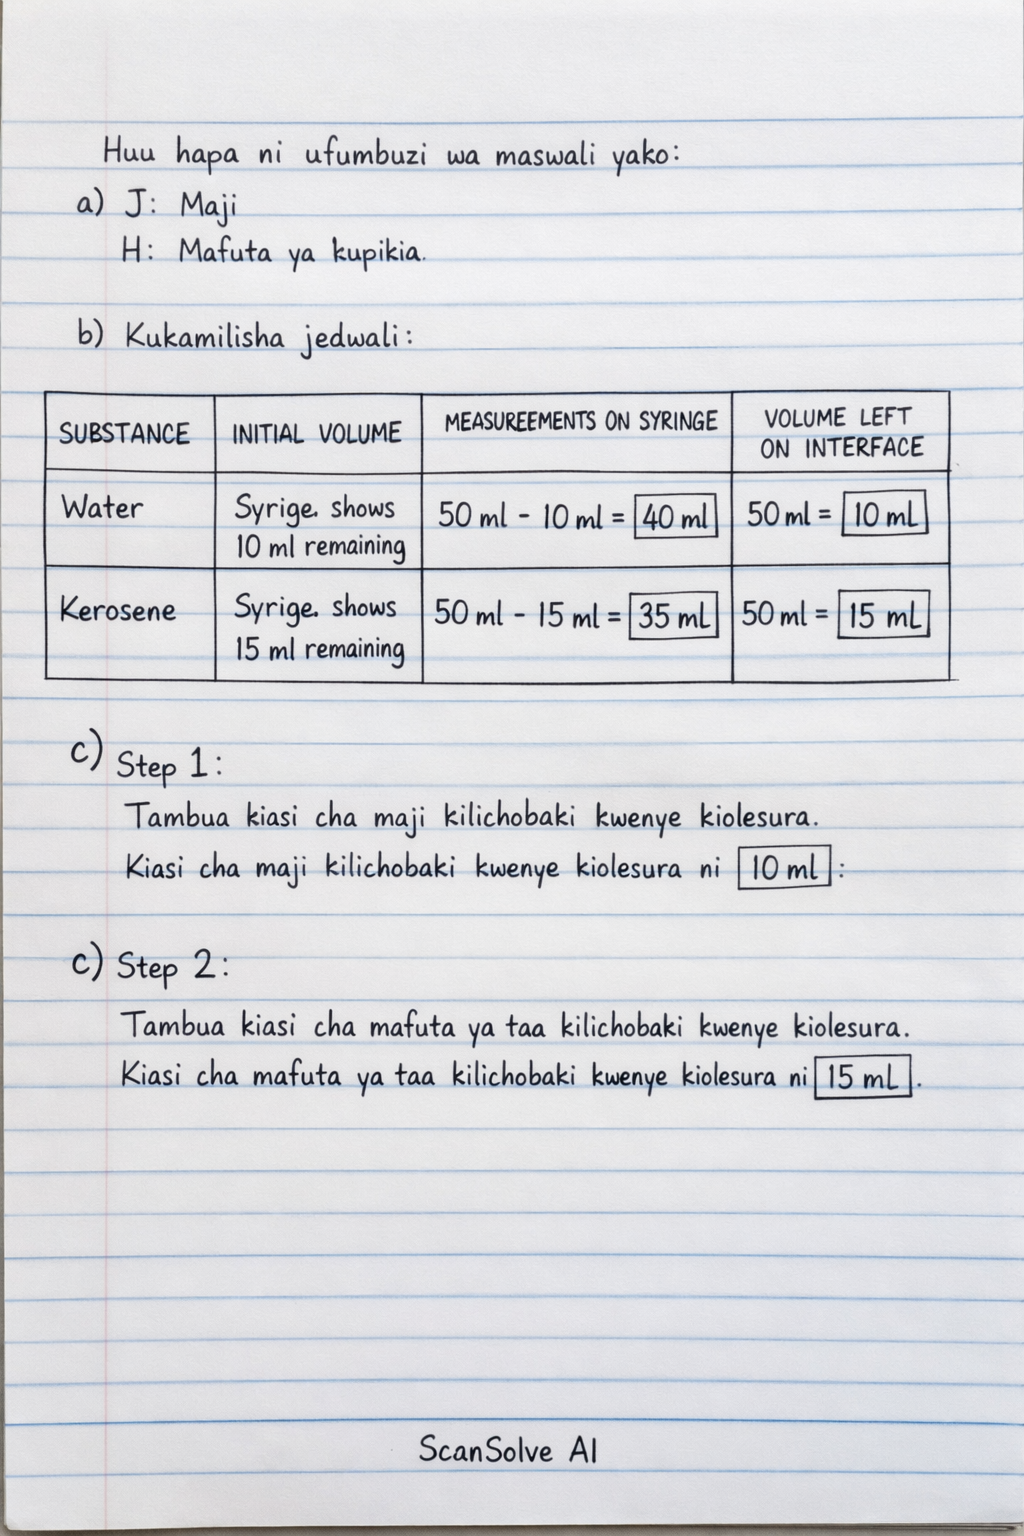 Huu hapa ni ufumbuzi wa maswali yako:
a) J: Maji
H: Mafuta ya kupikia.
b) Kukamilisha jedwali:
SUBSTANCE INITIAL VOLUME MEASUREEMENTS ON SYRINGE VOLUME LEFT ON INTERFACE
Water Syrige. shows 10 ml remaining 50 ml - 10 ml = 40 ml 50 ml = 10 mL
Kerosene Syrige. shows 15 ml remaining 50 ml - 15 ml = 35 mL 50 ml = 15 mL
c) Step 1:
Tambua kiasi cha maji kilichobaki kwenye kiolesura.
Kiasi cha maji kilichobaki kwenye kiolesura ni 10 ml :
c) Step 2:
Tambua kiasi cha mafuta ya taa kilichobaki kwenye kiolesura.
Kiasi cha mafuta ya taa kilichobaki kwenye kiolesura ni 15 mL .
ScanSolve AI